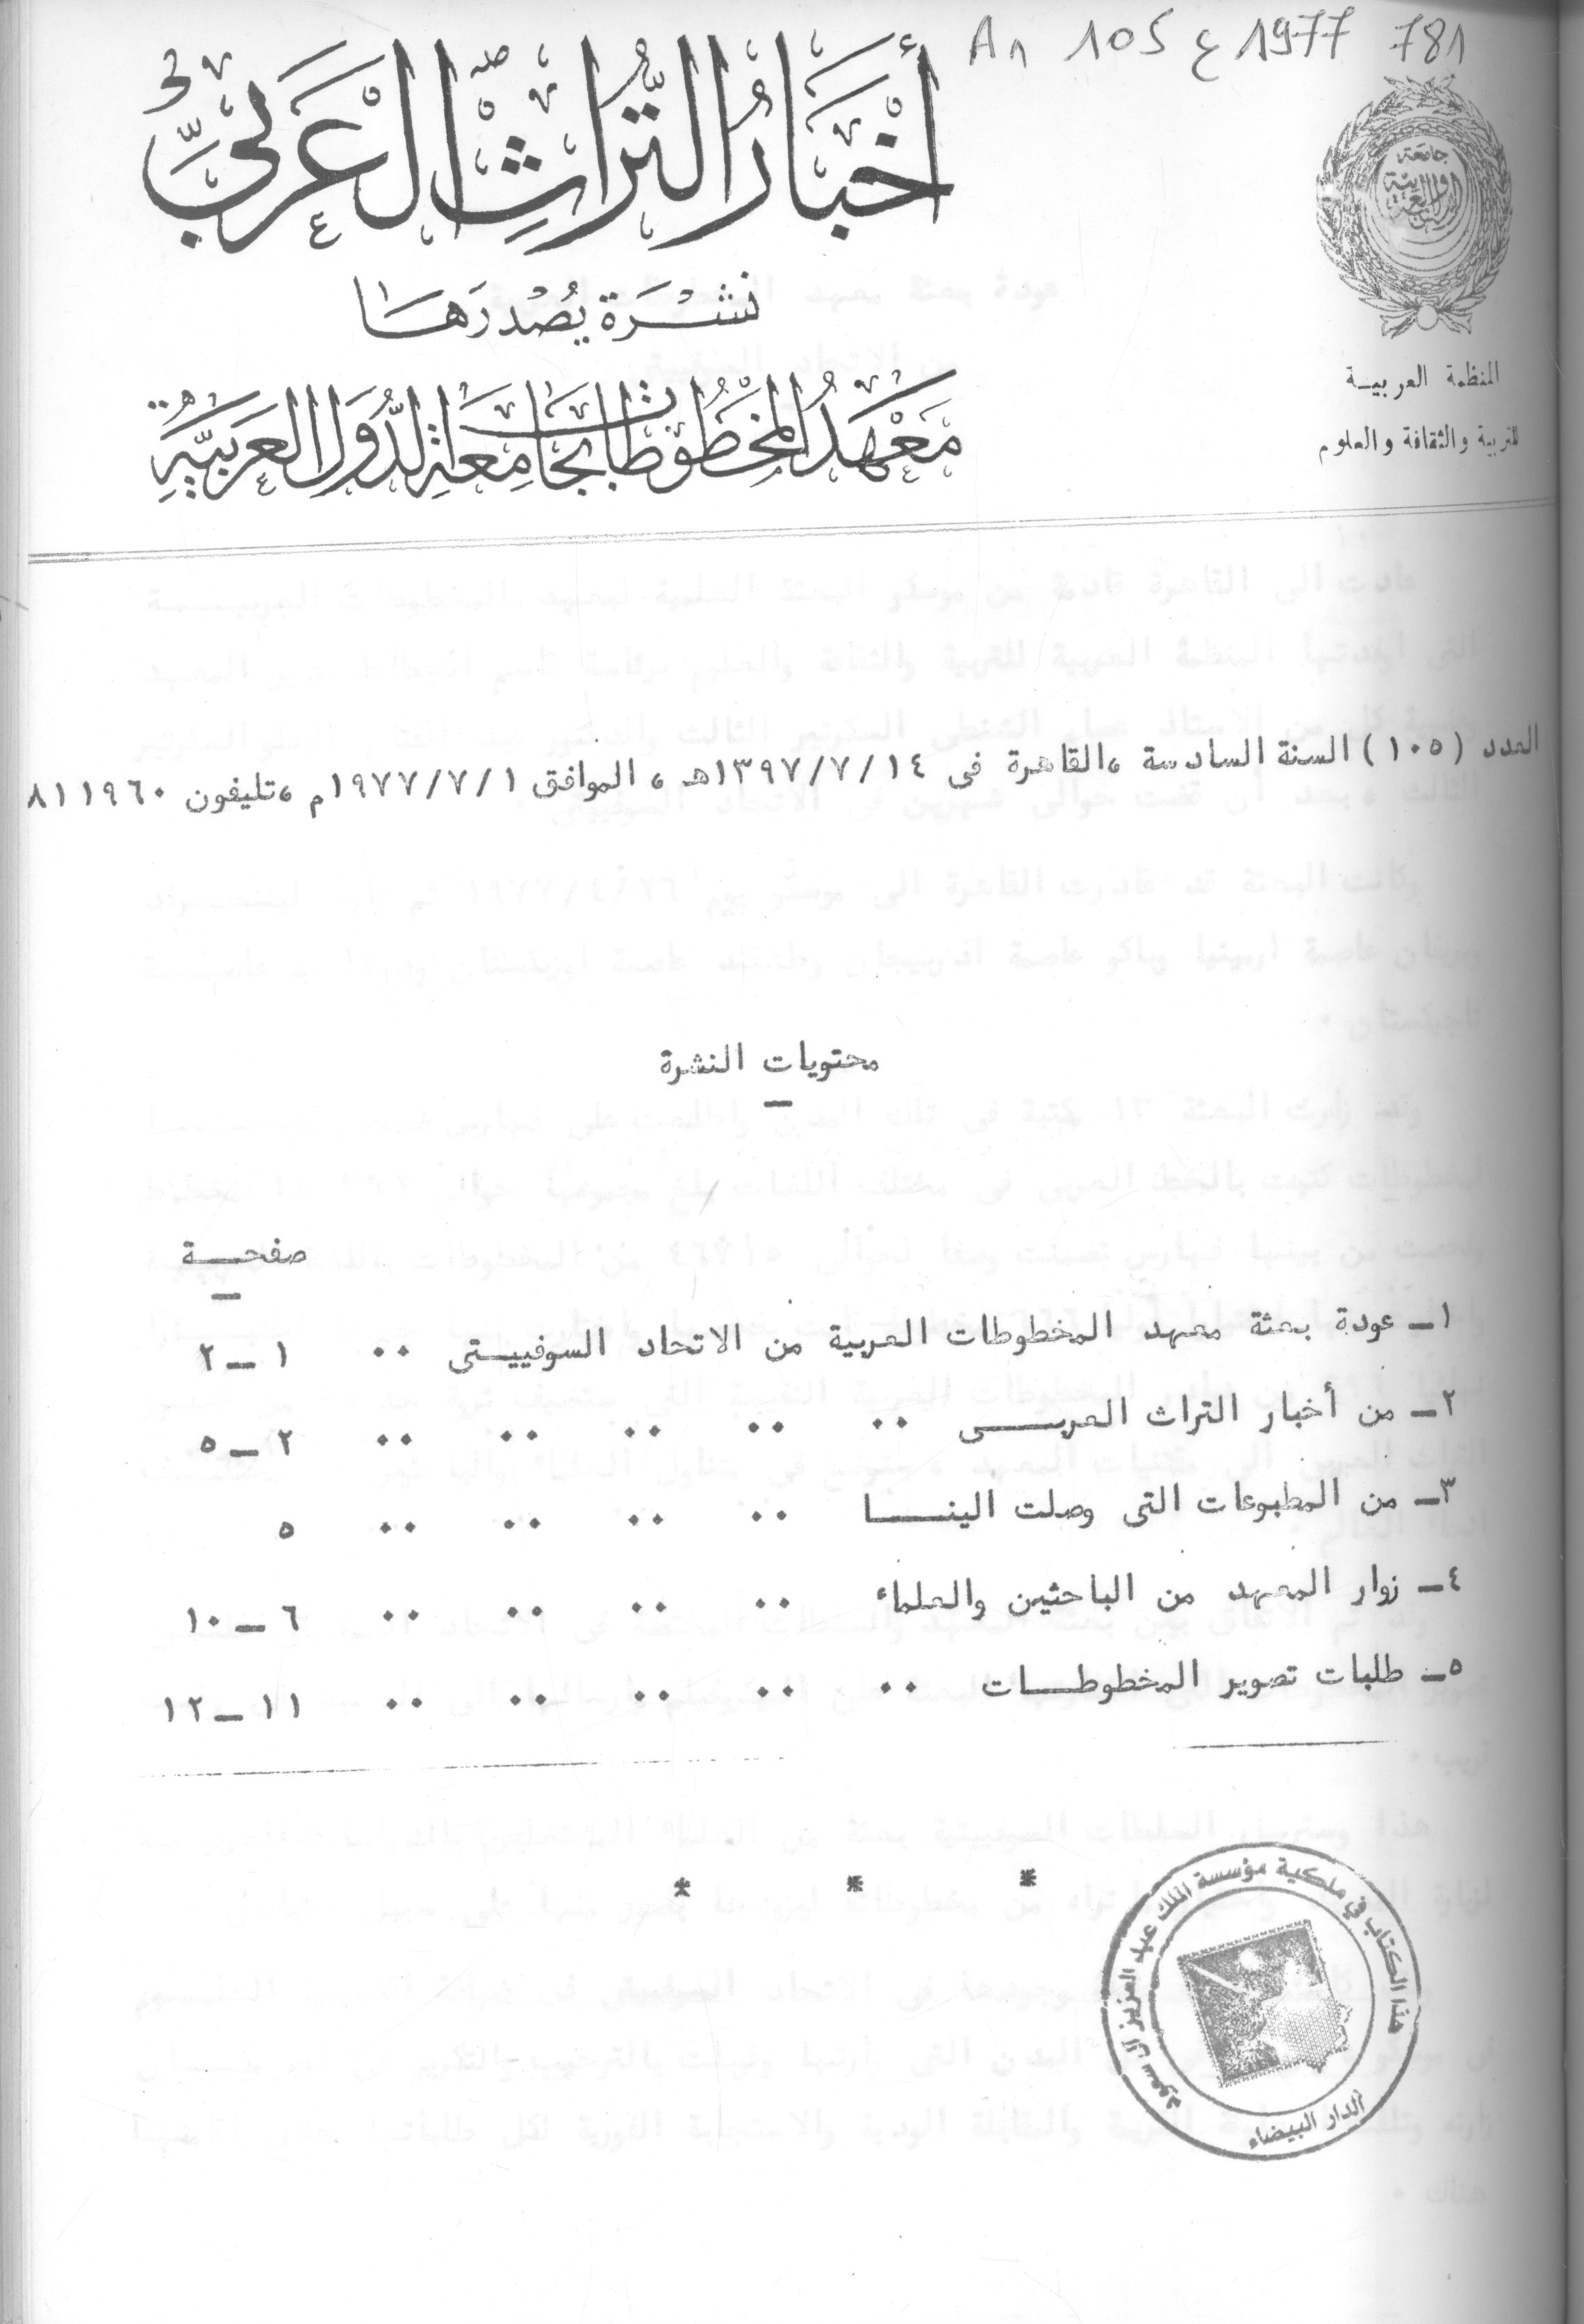 An 105 ع 1977 781
أخبار التراث العربي
نشرة يصدرها
معهد المخطوطات بجامعة الدول العربية
جامعة
الدول العربية
المنظمة العربيـة
للتربية والثقافة والعلوم
العدد (١٠٥) السنة السادسة ، القاهرة فى ١٣٩٧/٧/١٤هـ ، الموافق ١٩٧٧/٧/١م ، تليفون ٨١١٩٦٠
محتويات النشرة
صفحـــة
١ـ عودة بعثة معهد المخطوطات العربية من الاتحاد السوفييـــتى ٠٠ ١ ــ ٢
٢ـ من أخبار التراث العربـــــى ٠٠ ٠٠ ٠٠ ٠٠ ٠٠ ٢ ــ ٥
٣ـ من المطبوعات التى وصلت الينــــــا ٠٠ ٠٠ ٠٠ ٠٠ ٥
٤ـ زوار المعهد من الباحثين والعلماء ٠٠ ٠٠ ٠٠ ٠٠ ٦ ــ ١٠
٥ـ طلبات تصوير المخطوطـــات ٠٠ ٠٠ ٠٠ ٠٠ ٠٠ ١١ ــ ١٢
* * *
هذا الكتاب في ملكية مؤسسة الملك عبد العزيز ال سعود
الدار البيضاء